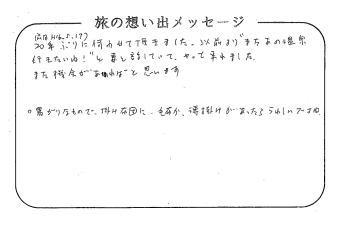 旅の想い出メッセージ
20年ぶりに伺わせて頂きました。以前より"またあの温泉
行きたいね!"と妻と話していて、やって来れました。
また機会があればと思います
○寒がりなもので、掛け布団に、毛布か、薄掛けがあったらうれしいですね。